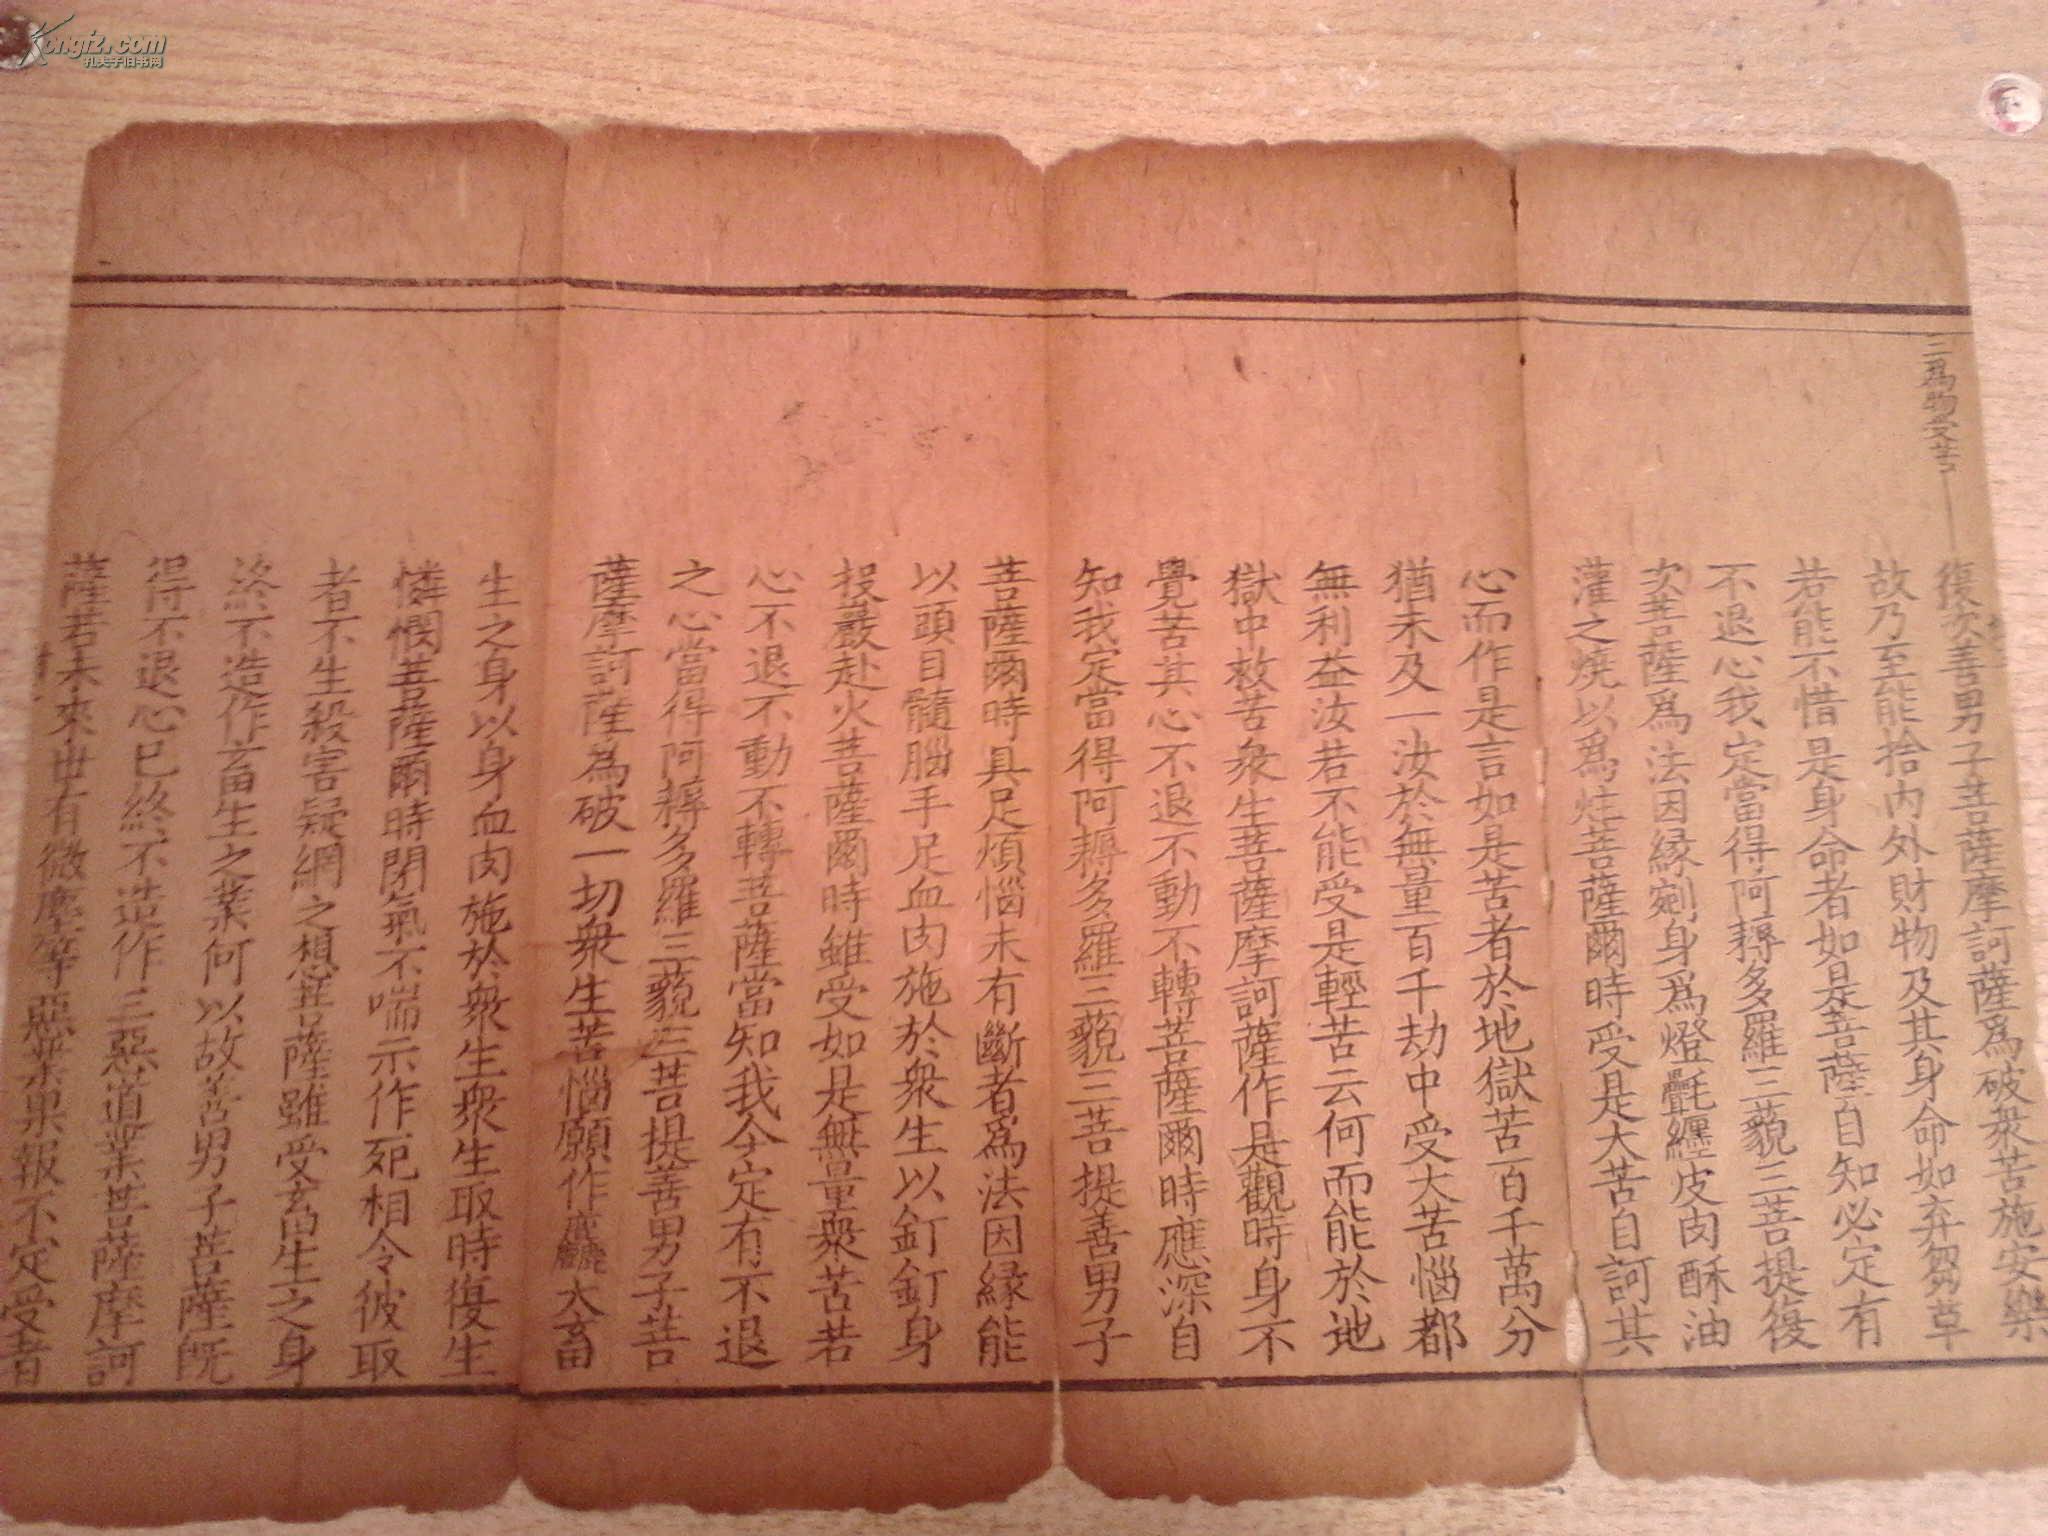 Kongfz.com
孔夫子旧书网
三爲物受苦
復次善男子菩薩摩訶薩爲破衆苦施安樂
故乃至能捨内外財物及其身命如弃芻草
若能不惜是身命者如是菩薩自知必定有
不退心我定當得阿耨多羅三藐三菩提復
次菩薩爲法因緣剜身爲燈㲲纏皮肉酥油
灌之燒以爲炷菩薩爾時受是大苦自訶其
心而作是言如是苦者於地獄苦百千萬分
猶未及一汝於無量百千劫中受大苦惱都
無利益汝若不能受是輕苦云何而能於地
獄中救苦衆生菩薩摩訶薩作是觀時身不
覺苦其心不退不動不轉菩薩爾時應深自
知我定當得阿耨多羅三藐三菩提善男子
菩薩爾時具足煩惱未有斷者爲法因緣能
以頭目髓腦手足血肉施於衆生以釘釘身
投巖赴火菩薩爾時雖受如是無量衆苦若
心不退不動不轉菩薩當知我今定有不退
之心當得阿耨多羅三藐三菩提善男子菩
薩摩訶薩爲破一切衆生苦惱願作麤大畜
生之身以身血肉施於衆生衆生取時復生
憐愍菩薩爾時閉氣不喘示作死相令彼取
者不生殺害疑網之想菩薩雖受畜生之身
終不造作畜生之業何以故善男子菩薩旣
得不退心已終不造作三惡道業菩薩摩訶
薩若未來世有微塵等惡業果報不定受者